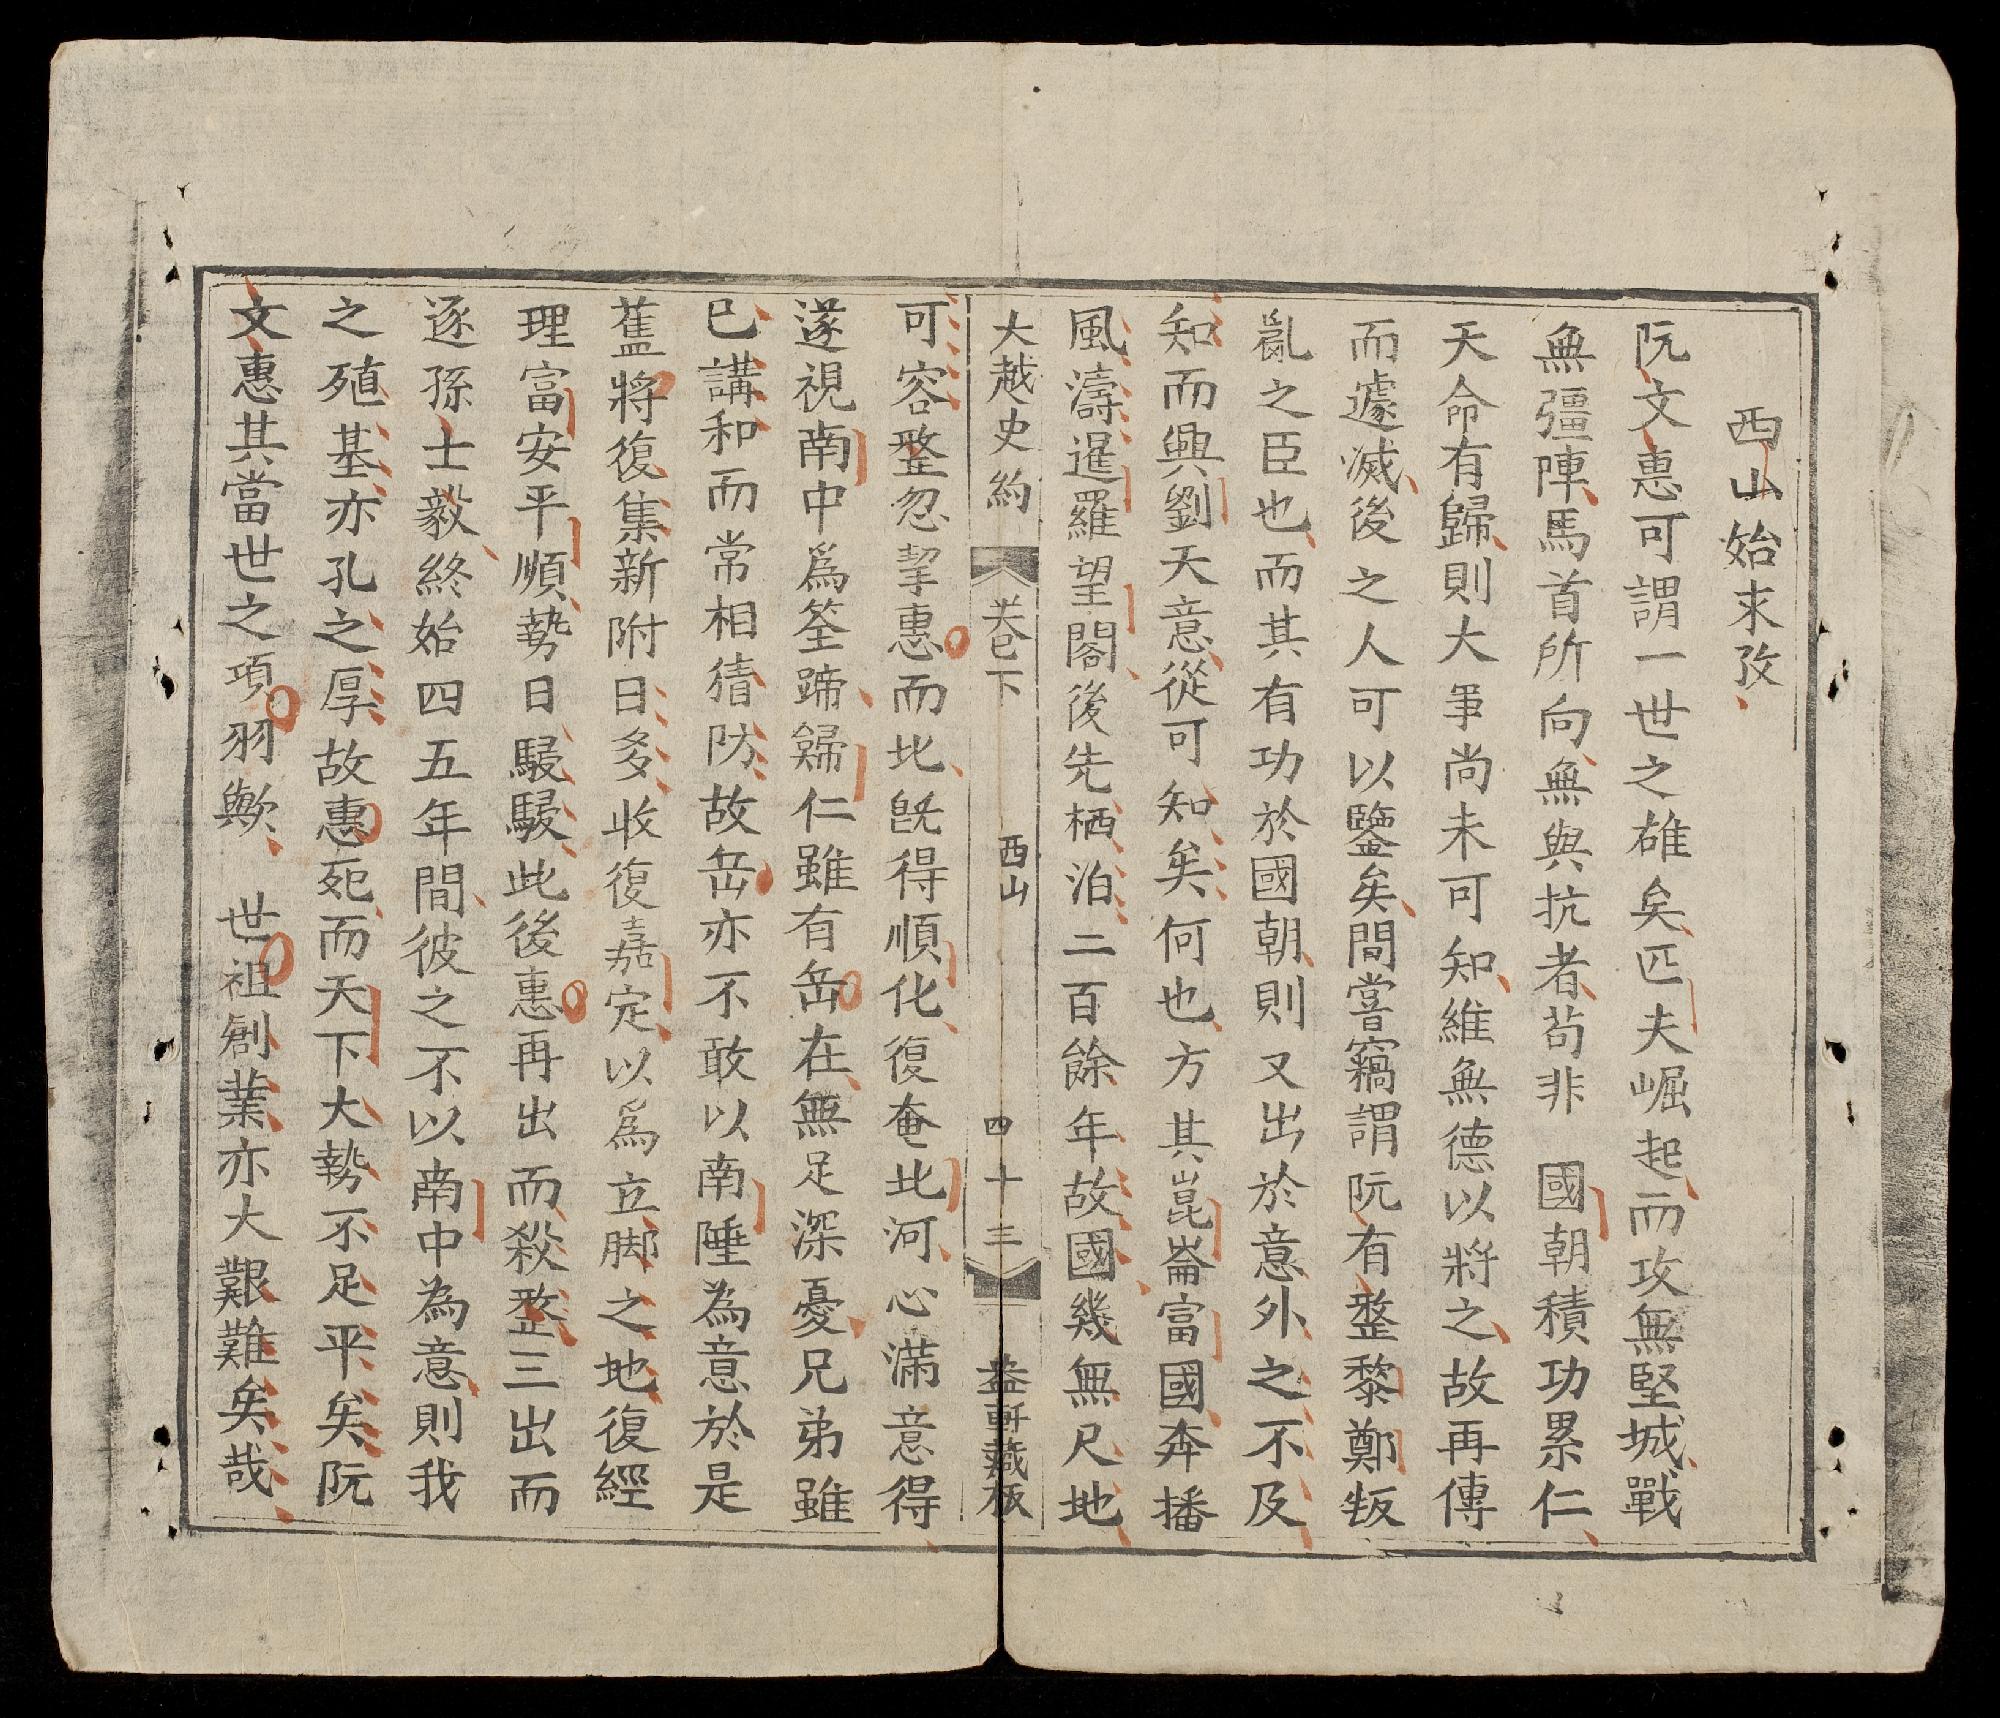 西山始末攷
阮文惠可謂一世之雄矣匹夫崛起而攻無堅城戰
無彊陣馬首所向無與抗者苟非 國朝積功累仁
天命有歸則大事尚未可知維無德以將之故再傳
而遽滅後之人可以鑒矣間嘗竊謂阮有整黎鄭叛
亂之臣也而其有功於國朝則又出於意外之不及
知而興劉天意從可知矣何也方其崑崙富國奔播
風濤暹羅望閣後先栖泊二百餘年故國幾無尺地
大越史約 卷下 西山 四十三 益軒藏板
可容整忽挈惠而北旣得順化復奄北河心滿意得
遂視南中爲筌蹄歸仁雖有岳在無足深憂兄弟雖
已講和而常相猜防故岳亦不敢以南陲為意於是
舊將復集新附日多收復嘉定以爲立脚之地復經
理富安平順勢日駸駸此後惠再出而殺整三出而
逐孫士毅終始四五年間彼之不以南中為意則我
之殖基亦孔之厚故惠死而天下大勢不足平矣阮
文惠其當世之項羽歟 世祖創業亦大艱難矣哉